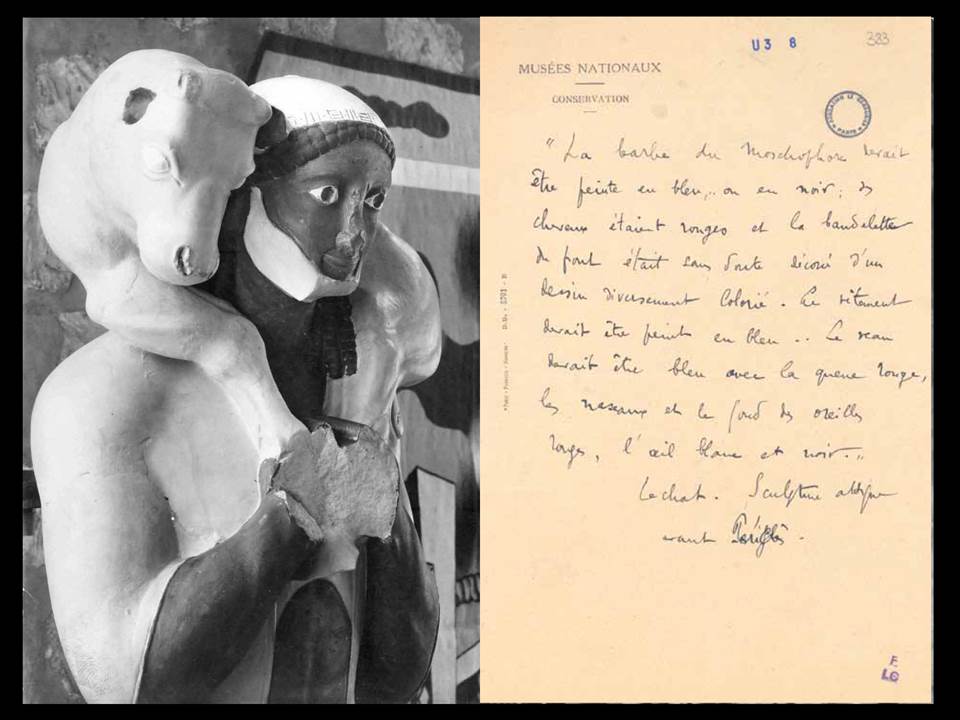 U3 8
383
MUSÉES NATIONAUX
CONSERVATION
FONDATION LE CORBUSIER
PARIS
" La barbe du Moschophore devait
être peinte en bleu,.. ou en noir; les
cheveux étaient rouges et la bandelette
du front était sans doute décoré d'un
dessin diversement colorié. Le vêtement
devait être peint en bleu .. Le veau
devait être bleu avec la queue rouge,
les naseaux et le fond des oreilles
rouges, l'œil blanc et noir. "
Lechat. Sculpture attique
avant Périclès.
F.
LC